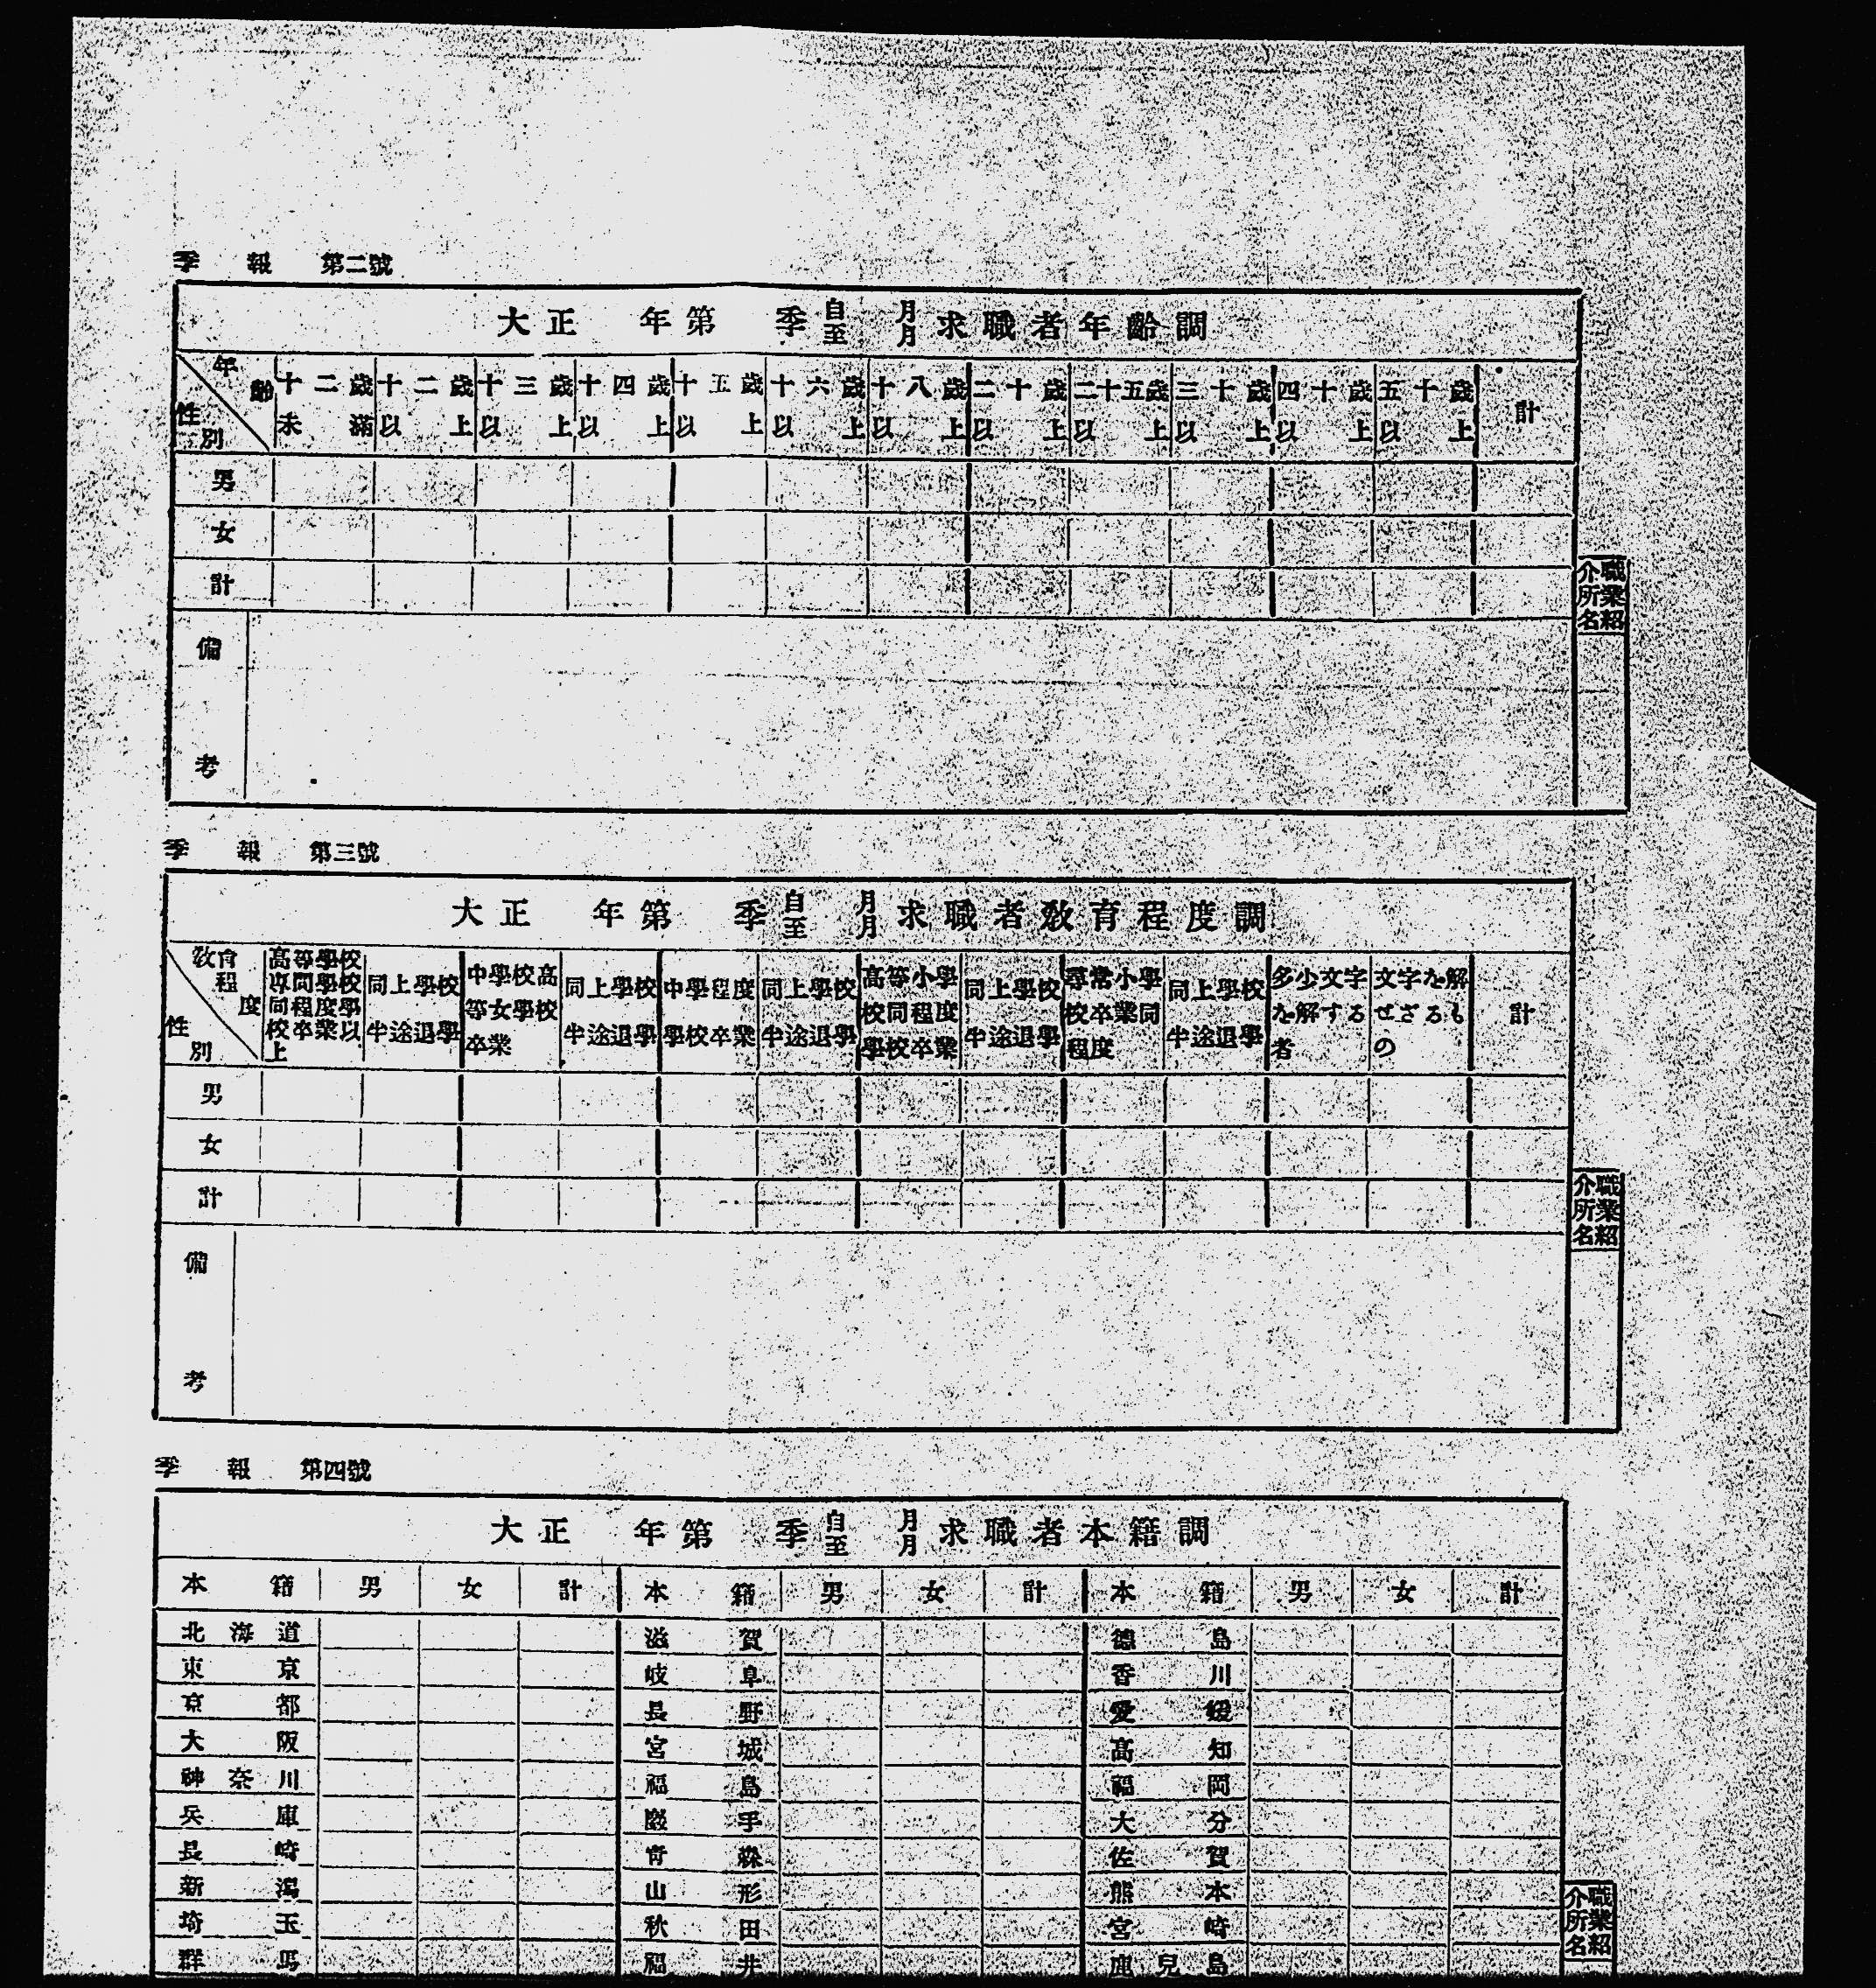 季報 第二號
大正 年第 季 自 月 至 月 求職者年齡調
年齡 性別 十二歲未滿 十二歲以上 十三歲以上 十四歲以上 十五歲以上 十六歲以上 十八歲以上 二十歲以上 二十五歲以上 三十歲以上 四十歲以上 五十歲以上 計
男
女
計
備考
職業紹介所名
季報 第三號
大正 年第 季 自 月 至 月 求職者敎育程度調
敎育程度 性別 高等學校專門學校同程度學校卒業以上 同上學校半途退學 中學校高等女學校卒業 同上學校半途退學 中學程度學校卒業 同上學校半途退學 高等小學校同程度學校卒業 同上學校半途退學 尋常小學校卒業同程度 同上學校半途退學 多少文字を解する者 文字を解せざるもの 計
男
女
計
備考
職業紹介所名
季報 第四號
大正 年第 季 自 月 至 月 求職者本籍調
本籍 男 女 計 本籍 男 女 計 本籍 男 女 計
北海道 滋賀 德島
東京 岐阜 香川
京都 長野 愛媛
大阪 宮城 高知
神奈川 福島 福岡
兵庫 巖手 大分
長崎 靑森 佐賀
新潟 山形 熊本
埼玉 秋田 宮崎
群馬 福井 鹿兒島
職業紹介所名